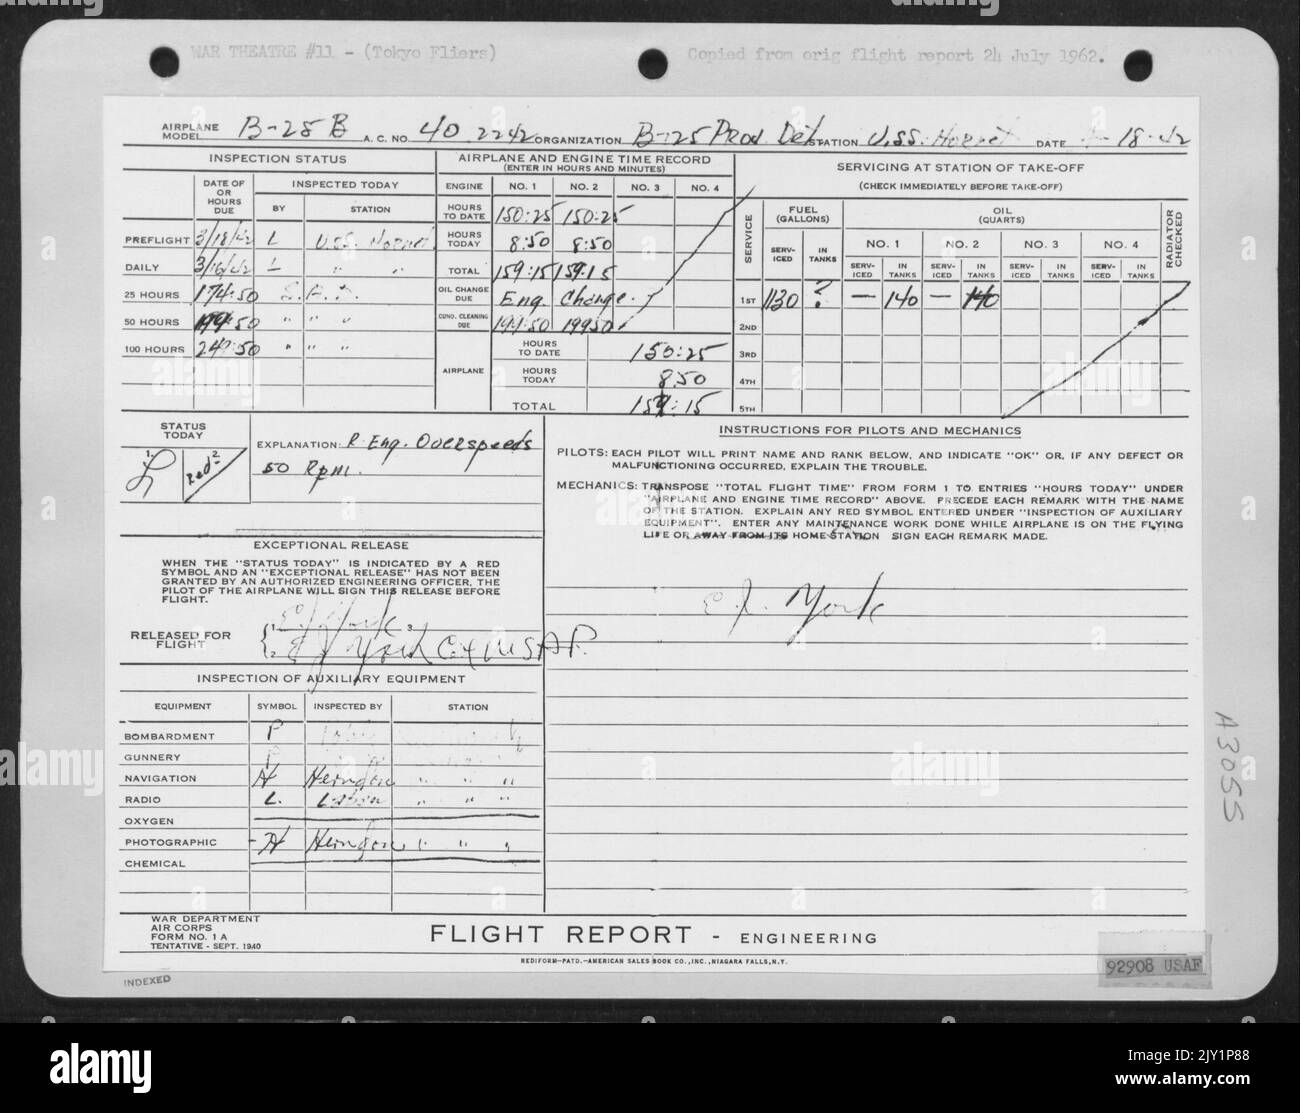 WAR THEATRE #11 - (Tokyo Fliers) Copied from orig flight report 24 July 1962.
AIRPLANE MODEL B-25 B A. C. NO. 40 2242 ORGANIZATION B-25 Prod. Det. STATION U.S.S. Hornet DATE -18-42
INSPECTION STATUS
DATE OF OR HOURS DUE INSPECTED TODAY
BY STATION
PREFLIGHT 3/18/42 L U.S.S. Hornet
DAILY 3/16/42 L " "
25 HOURS 174:50
50 HOURS 199:50 " " "
100 HOURS 249:50 " " "
AIRPLANE AND ENGINE TIME RECORD
(ENTER IN HOURS AND MINUTES)
ENGINE NO. 1 NO. 2 NO. 3 NO. 4
HOURS TO DATE 150:25 150:25
HOURS TODAY 8:50 8:50
TOTAL 159:15 159:15
OIL CHANGE DUE Eng. Change.
CUNO. CLEANING DUE 199:50 19950
AIRPLANE
HOURS TO DATE 150:25
HOURS TODAY 8.50
TOTAL 159:15
SERVICING AT STATION OF TAKE-OFF
(CHECK IMMEDIATELY BEFORE TAKE-OFF)
SERVICE FUEL (GALLONS) OIL (QUARTS) RADIATOR CHECKED
NO. 1 NO. 2 NO. 3 NO. 4
SERV-ICED IN TANKS SERV-ICED IN TANKS SERV-ICED IN TANKS SERV-ICED IN TANKS SERV-ICED IN TANKS
1ST 1130 ? — 140 — 140
2ND
3RD
4TH
5TH
STATUS TODAY
1. L Red 2
EXPLANATION: R. Eng. Overspeeds
50 Rpm.
EXCEPTIONAL RELEASE
WHEN THE "STATUS TODAY" IS INDICATED BY A RED
SYMBOL AND AN "EXCEPTIONAL RELEASE" HAS NOT BEEN
GRANTED BY AN AUTHORIZED ENGINEERING OFFICER, THE
PILOT OF THE AIRPLANE WILL SIGN THIS RELEASE BEFORE
FLIGHT.
RELEASED FOR FLIGHT
1. E J York 3
2. E J York
INSPECTION OF AUXILIARY EQUIPMENT
EQUIPMENT SYMBOL INSPECTED BY STATION
BOMBARDMENT P
GUNNERY P
NAVIGATION H Herndon " " "
RADIO L. Laban " " "
OXYGEN
PHOTOGRAPHIC H Herndon " " "
CHEMICAL
INSTRUCTIONS FOR PILOTS AND MECHANICS
PILOTS: EACH PILOT WILL PRINT NAME AND RANK BELOW, AND INDICATE "OK" OR, IF ANY DEFECT OR
MALFUNCTIONING OCCURRED, EXPLAIN THE TROUBLE.
MECHANICS: TRANSPOSE "TOTAL FLIGHT TIME" FROM FORM 1 TO ENTRIES "HOURS TODAY" UNDER
"AIRPLANE AND ENGINE TIME RECORD" ABOVE. PRECEDE EACH REMARK WITH THE NAME
OF THE STATION. EXPLAIN ANY RED SYMBOL ENTERED UNDER "INSPECTION OF AUXILIARY
EQUIPMENT". ENTER ANY MAINTENANCE WORK DONE WHILE AIRPLANE IS ON THE FLYING
LINE OR AWAY FROM ITS HOME STATION SIGN EACH REMARK MADE.
E. J. York
WAR DEPARTMENT
AIR CORPS
FORM NO. 1 A
TENTATIVE - SEPT. 1940
FLIGHT REPORT - ENGINEERING
REDIFORM—PATD.—AMERICAN SALES BOOK CO., INC., NIAGARA FALLS, N.Y.
INDEXED
92908 USAF
A3055
alamy
Image ID: 2JY1P88
www.alamy.com